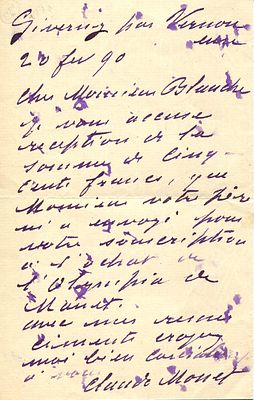 Giverny par Vernon
Eure
20 fev 90
Cher Monsieur Blanche
Je vous accuse
reception de la
somme de cinq
cents francs, que
Monsieur votre père
m'a envoyé pour
votre souscription
à l'achat de
l'Olympia de
Manet.
avec mes remer
ciements croyez
moi bien cordialement
à vous
Claude Monet